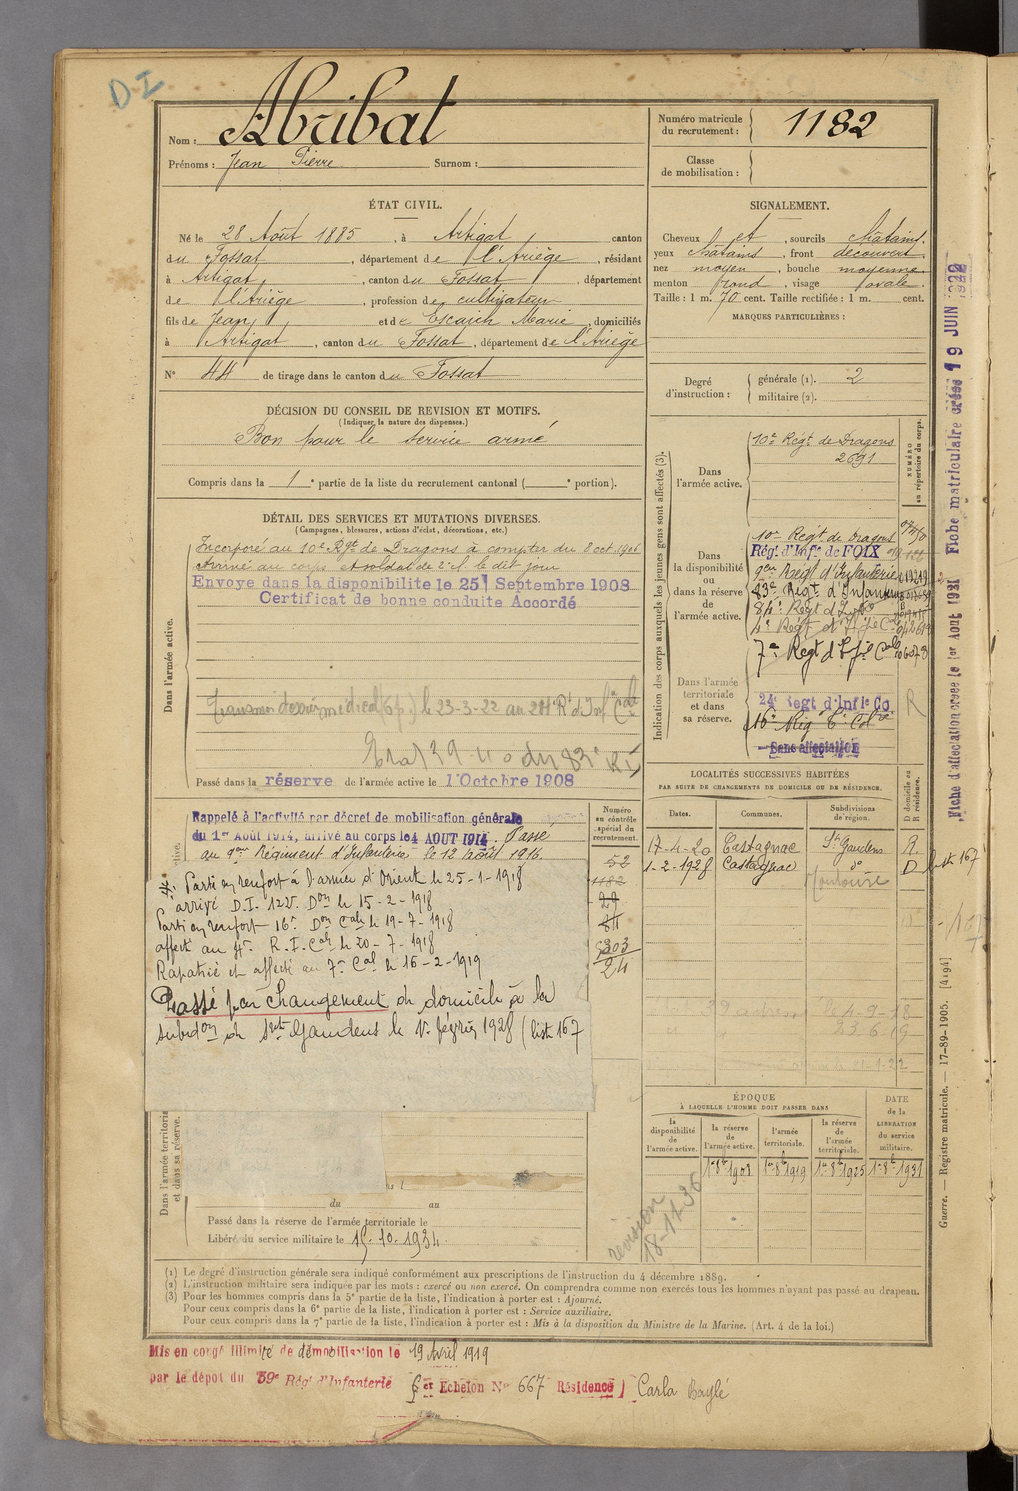 D I
Nom : Abribat
Prénoms : Jean Pierre Surnom :
Numéro matricule du recrutement : 1182
Classe de mobilisation :
ÉTAT CIVIL.
Né le 28 Août 1885, à Artigat canton
du Fossat, département de l'Ariège, résidant
à Artigat, canton du Fossat, département
de l'Ariège, profession de cultivateur
fils de Jean et de Escaich Marie, domiciliés
à Artigat, canton du Fossat, département de l'Ariège
N° 44 de tirage dans le canton du Fossat
SIGNALEMENT.
Cheveux et, sourcils châtains.
yeux châtains, front découvert.
nez moyen, bouche moyenne.
menton rond, visage ovale.
Taille : 1 m. 70 cent. Taille rectifiée : 1 m. cent.
MARQUES PARTICULIÈRES :
Degré d'instruction : générale (1). 2
militaire (2).
DÉCISION DU CONSEIL DE REVISION ET MOTIFS.
(Indiquer la nature des dispenses.)
Bon pour le service armé
Compris dans la 1e partie de la liste du recrutement cantonal ( e portion).
DÉTAIL DES SERVICES ET MUTATIONS DIVERSES.
(Campagnes, blessures, actions d'éclat, décorations, etc.)
Dans l'armée active.
Incorporé au 10e Rgt de Dragons à compter du 8 oct. 1906
Arrivé au corps et soldat de 2e cl. le dit jour
Envoyé dans la disponibilité le 25 Septembre 1908
Certificat de bonne conduite Accordé
le 23-3-22 au 24e Rt d'Inf Cale
Passé dans la réserve de l'armée active le 1 Octobre 1908
Indication des corps auxquels les jeunes gens sont affectés (3).
NUMÉRO au répertoire du corps.
Dans l'armée active.
10e Régt de Dragons
2691
Dans la disponibilité ou dans la réserve de l'armée active.
10e Régt de Dragons
Rég. d'Infie de FOIX
9me Régt d'Infanterie
83e Régt d'Infanterie
4e Régt d'Ife Cale
7e Régt d'Ife Cale
Dans l'armée territoriale et dans sa réserve.
24e Regt d'Infie Co.
R
16e
Sans affectation
Rappelé à l'activité par décret de mobilisation générale
du 1er Août 1914, arrivé au corps le 4 AOUT 1914. Passé
au 9me Régiment d'Infanterie le 12 Août 1916.
Parti en renfort à l'armée d'Orient le 25-1-1918
arrivé D.I. 122e Don le 15-2-1918
Parti en renfort 16e Don Cale le 19-7-1918
affecté au 4e R.I. Cale le 20-7-1918
Rapatrié et affecté au 7e Cal le 16-2-1919
Passé par changement de domicile à la
subdon de St Gaudens le 1er février 1928 (liste 167
Numéro au contrôle spécial du recrutement.
52
1182
5303
24
LOCALITÉS SUCCESSIVES HABITÉES
PAR SUITE DE CHANGEMENTS DE DOMICILE OU DE RÉSIDENCE.
Dates. Communes. Subdivisions de région. D domicile ou R résidence.
17-4-20 Castagnac St Gaudens R.
1-2-1928 Castagnac do D liste 167
Toulouse
ÉPOQUE
À LAQUELLE L'HOMME DOIT PASSER DANS
la disponibilité de l'armée active.
la réserve de l'armée active.
l'armée territoriale.
la réserve de l'armée territoriale.
DATE de la LIBÉRATION du service militaire.
1er 8bre 1908 1er 8bre 1919 1er 8bre 1925 1er 8bre 1931
révision
Dans l'armée territoriale et dans sa réserve.
du au
Passé dans la réserve de l'armée territoriale le
Libéré du service militaire le 15-10-1934
(1) Le degré d'instruction générale sera indiqué conformément aux prescriptions de l'instruction du 4 décembre 1889.
(2) L'instruction militaire sera indiquée par les mots : exercé ou non exercé. On comprendra comme non exercés tous les hommes n'ayant pas passé au drapeau.
(3) Pour les hommes compris dans la 5e partie de la liste, l'indication à porter est : Ajourné.
Pour ceux compris dans la 6e partie de la liste, l'indication à porter est : Service auxiliaire.
Pour ceux compris dans la 7e partie de la liste, l'indication à porter est : Mis à la disposition du Ministre de la Marine. (Art. 4 de la loi.)
Mis en congé illimité de démobilisation le 19 Avril 1919
par le dépôt du 59e Rég. d'Infanterie
Echelon N° 667 Résidence Carla Baylé
Fiche d'affectation créée le 1er Aout 1931
Fiche matriculaire créée 19 JUIN 1922
Guerre. — Registre matricule. — 17-89-1905. [4194]